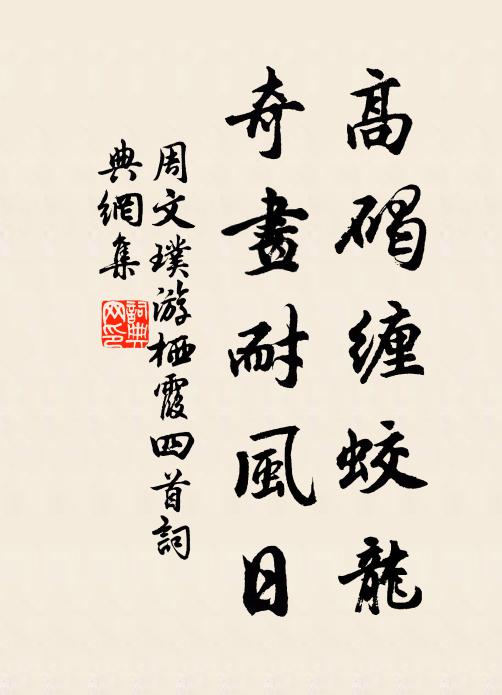 高碣缠蛟龍
奇畫耐風日
周文璞游栖霞四首詞
典網集
詞典网印